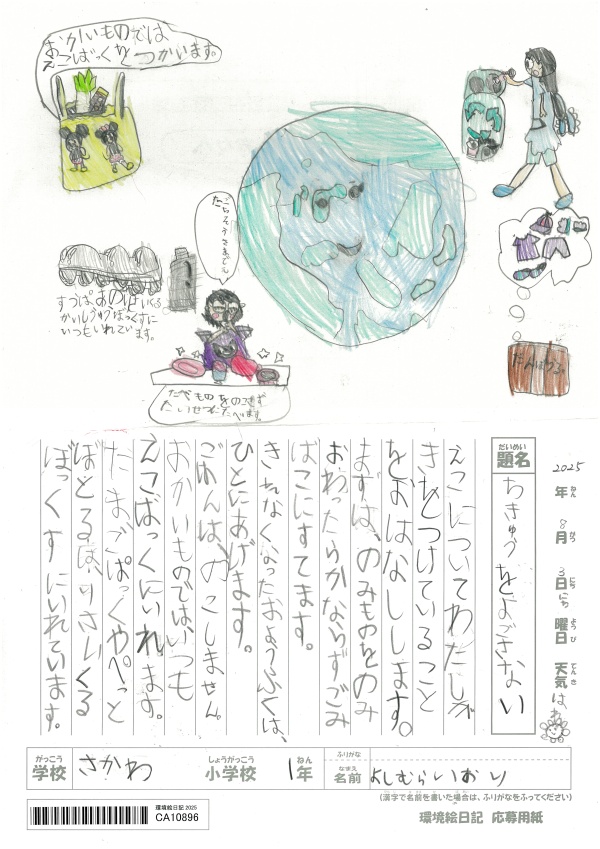 おかいものでは
えこばっくをつかいます。
ごちそうさまでし
た
すうぱあのりさいくる
かいしゅうぼっくすに
いつもいれています。
たべものをのこさず
たいせつにたべます。
だんぼうる
2025年 8月 3日 にち曜日 天気 はれ
ねん がつ にち ようび てんき
だいめい
題名 ちきゅうをよごさない
えこについてわたしが
きをつけていること
をおはなしします。
まずは、のみものをのみ
おわったらかならずごみ
ばこにすてます。
きれなくなったおようふくは、
ひとにあげます。
ごはんは、のこしません。
おかいものでは、いつも
えこばっくにいれます。
たまごぱっくやぺっと
ぼとるは、りさいくる
ぼっくすにいれています。
がっこう しょうがっこう ねん
学校 さかわ 小学校 1年
ふりがな
なまえ
名前 よしむらいおり
(漢字で名前を書いた場合は、ふりがなをふってください)
環境絵日記 2025
CA10896
環境絵日記 応募用紙